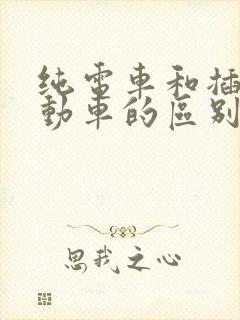 纯電車和插
動車的區别
思我之心